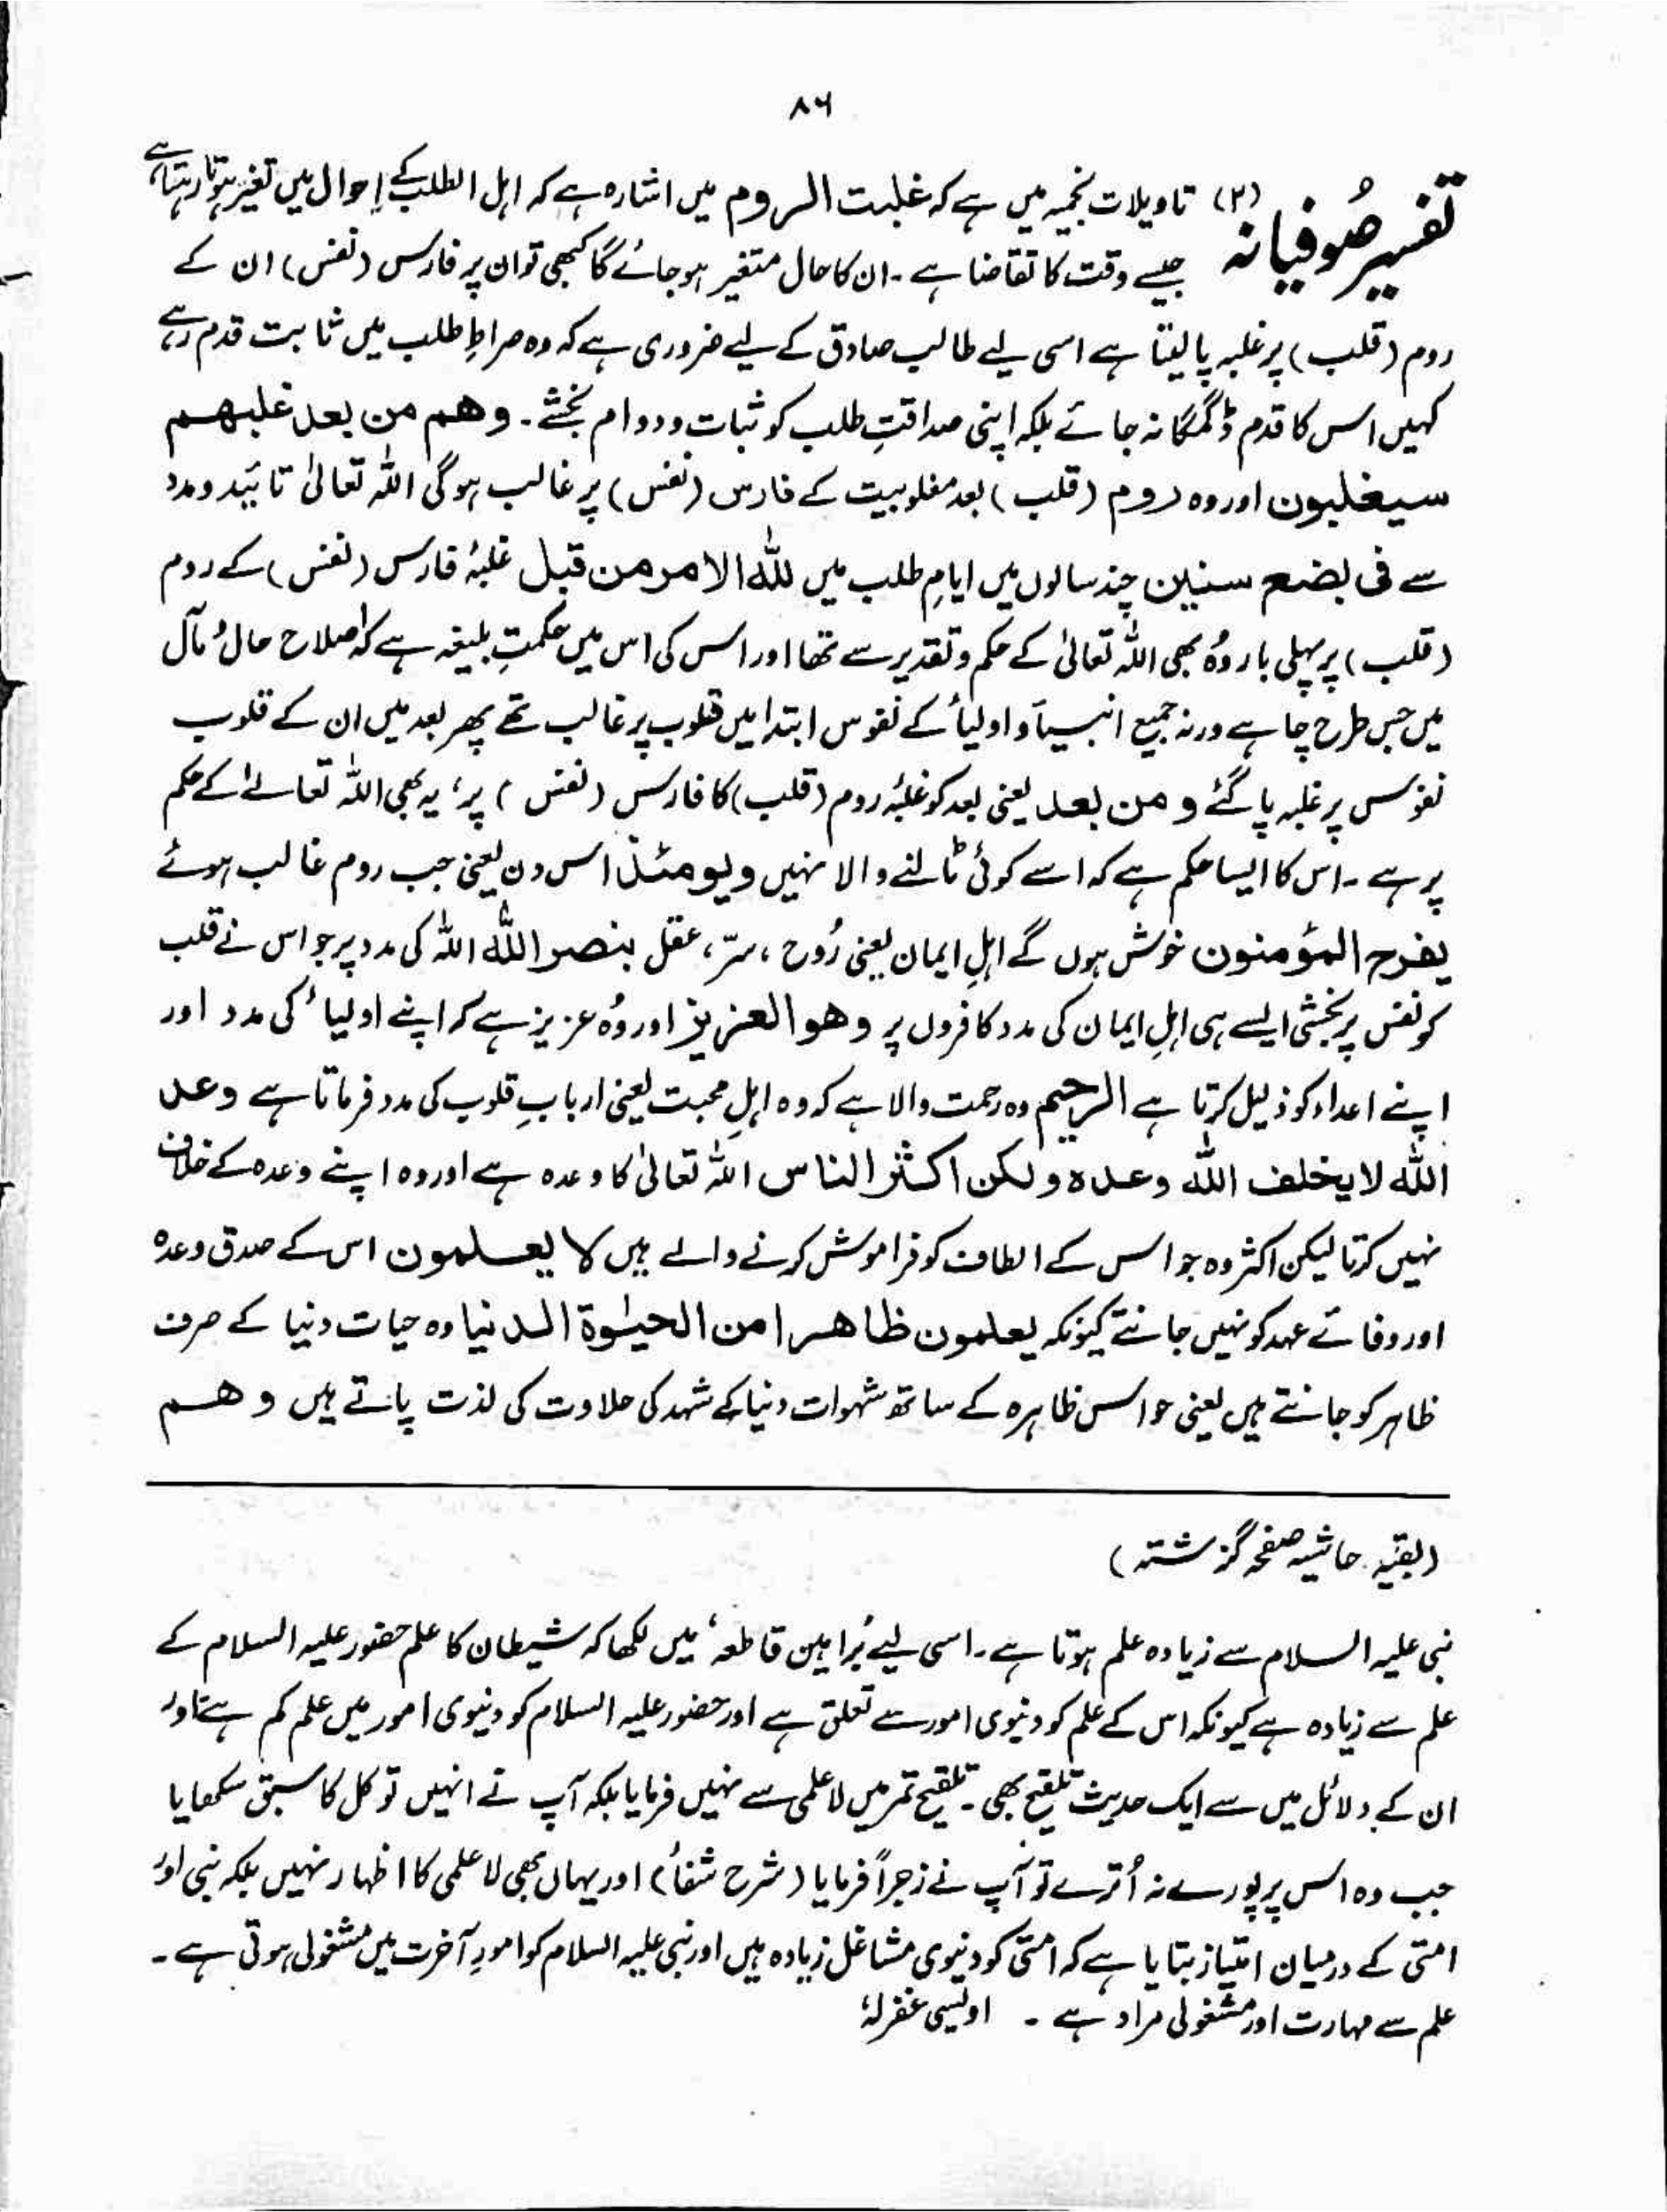 ۸۶
تفسیر صُوفیانہ (۲) تاویلات نجمیہ میں ہے کہ غلبت الروم میں اشارہ ہے کہ اہل الطلب کے احوال میں تغیر ہوتا رہتا ہے
جیسے وقت کا تقاضا ہے ۔ ان کا حال متغیر ہو جائے گا کبھی تو ان پر فارس (نفس) ان کے
روم (قلب) پر غلبہ پا لیتا ہے اسی لیے طالب صادق کے لیے ضروری ہے کہ وہ صراطِ طلب میں ثابت قدم رہے
کہیں اس کا قدم ڈگمگا نہ جائے بلکہ اپنی صداقتِ طلب کو ثبات و دوام بخشے ۔ وهم من بعد غلبهم
سیغلبون اور وہ روم (قلب) بعد مغلوبیت کے فارس (نفس) پر غالب ہوگی اللہ تعالیٰ تائید و مدد
سے فی بضع سنین چند سالوں میں ایامِ طلب میں للّٰہ الامر من قبل غلبۂ فارس (نفس) کے روم
(قلب) پر پہلی بار وُہ بھی اللہ تعالیٰ کے حکم و تقدیر سے تھا اور اس کی اس میں حکمتِ بلیغہ ہے کہ اصلاح حال و مآل
میں جس طرح چاہے ورنہ جمیع انبیاؑ و اولیاؒ کے نفوس ابتدا میں قلوب پر غالب تھے پھر بعد میں ان کے قلوب
نفوس پر غلبہ پا گئے و من بعد یعنی بعد کو غلبۂ روم (قلب) کا فارس (نفس) پر، یہ بھی اللہ تعالےٰ کے حکم
پر ہے ۔ اس کا ایسا حکم ہے کہ اسے کوئی ٹالنے والا نہیں ویومئذ اس دن یعنی جب روم غالب ہوئے
یفرح المؤمنون خوش ہوں گے اہلِ ایمان یعنی رُوح ، سرّ، عقل بنصر اللّٰہ اللہ کی مدد پر جو اس نے قلب
کو نفس پر بخشی ایسے ہی اہلِ ایمان کی مدد کافروں پر وهو العزیز اور وُہ عزیز ہے کہ اپنے اولیاءٔ کی مدد اور
اپنے اعداء کو ذلیل کرتا ہے الرحیم وہ رحمت والا ہے کہ وہ اہلِ محبت یعنی اربابِ قلوب کی مدد فرماتا ہے وعد
اللّٰہ لا یخلف اللّٰہ وعدہ ولکن اکثر الناس اللہ تعالیٰ کا وعدہ ہے اور وہ اپنے وعدہ کے خلاف
نہیں کرتا لیکن اکثر وہ جو اس کے الطاف کو فراموش کرنے والے ہیں لا یعلمون اس کے صدق وعدہ
اور وفائے عہد کو نہیں جانتے کیونکہ یعلمون ظاهرا من الحیٰوة الدنیا وہ حیات دنیا کے صرف
ظاہر کو جانتے ہیں یعنی حواس ظاہرہ کے ساتھ شہوات دنیا کے شہد کی حلاوت کی لذت پاتے ہیں وهم
(بقیہ حاشیہ صفحہ گزشتہ)
نبی علیہ السلام سے زیادہ علم ہوتا ہے ۔ اسی لیے 'براہین قاطعہ' میں لکھا کہ شیطان کا علم حضور علیہ السلام کے
علم سے زیادہ ہے کیونکہ اس کے علم کو دنیوی امور سے تعلق ہے اور حضور علیہ السلام کو دنیوی امور میں علم کم ہے اور
ان کے دلائل میں سے ایک حدیث تلقیح بھی ۔ تلقیح تمر میں لاعلمی سے نہیں فرمایا بلکہ آپ نے انہیں توکل کا سبق سکھایا
جب وہ اس پر پورے نہ اُترے تو آپ نے زجراً فرمایا (شرح شفاؑ) اور یہاں بھی لاعلمی کا اظہار نہیں بلکہ نبی اور
امتی کے درمیان امتیاز بتایا ہے کہ امتی کو دنیوی مشاغل زیادہ ہیں اور نبی علیہ السلام کو امورِ آخرت میں مشغولی ہوتی ہے ۔
علم سے مہارت اور مشغولی مراد ہے ۔ اویسی غفرلہٗ